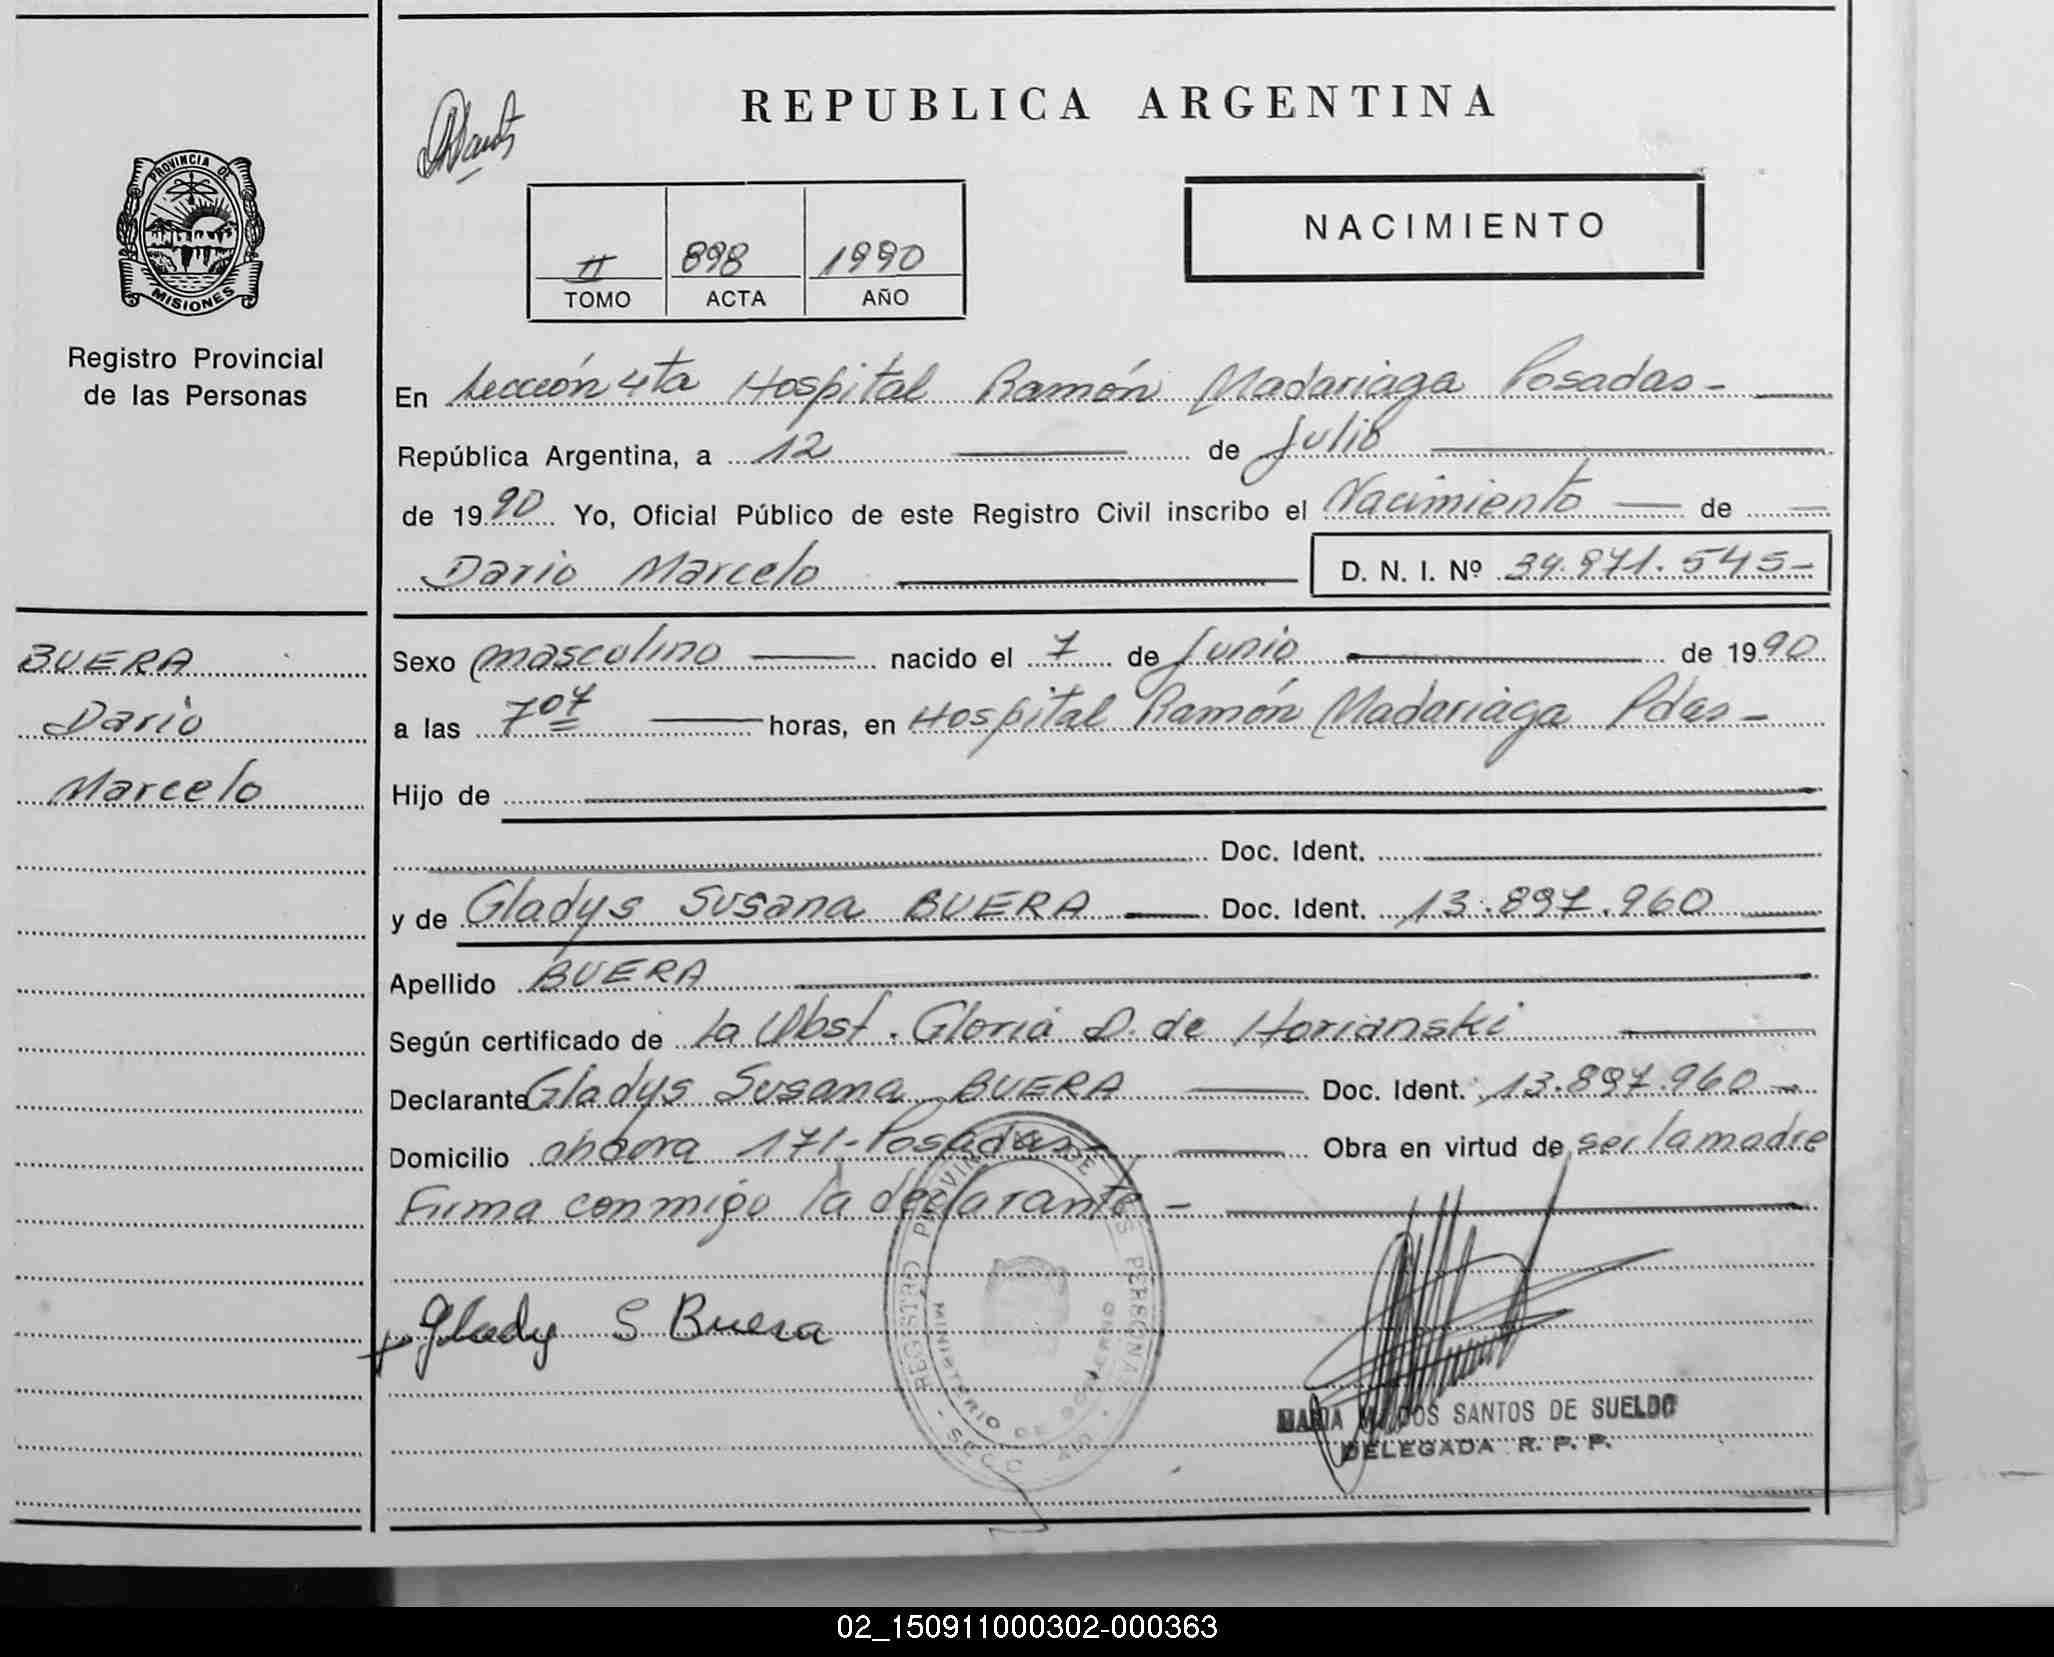 REPUBLICA ARGENTINA
PROVINCIA DE
MISIONES
Registro Provincial
de las Personas
NACIMIENTO
II 898 1990
TOMO ACTA AÑO
En Sección 4ta Hospital Ramón Madariaga Posadas-
República Argentina, a 12 de Julio
de 1990 Yo, Oficial Público de este Registro Civil inscribo el Nacimiento de
Dario Marcelo D. N. I. Nº 34.871.545-
BUERA
Dario
Marcelo
Sexo masculino nacido el 7 de Junio de 1990
a las 7 07 horas, en Hospital Ramón Madariaga Pdas-
Hijo de
Doc. Ident.
y de Gladys Susana BUERA Doc. Ident. 13.897.960
Apellido BUERA
Según certificado de la Obst. Gloria D. de Horianski
Declarante Gladys Susana BUERA Doc. Ident. 13.897.960-
Domicilio 171-Posadas- Obra en virtud de ser la madre
Firma conmigo la declarante-
Glady S Buera
REGISTRO PROVINCIAL DE LAS PERSONAS
MINISTERIO DE GOBIERNO
MARIA DOS SANTOS DE SUELDO
DELEGADA R. P. P.
02_150911000302-000363